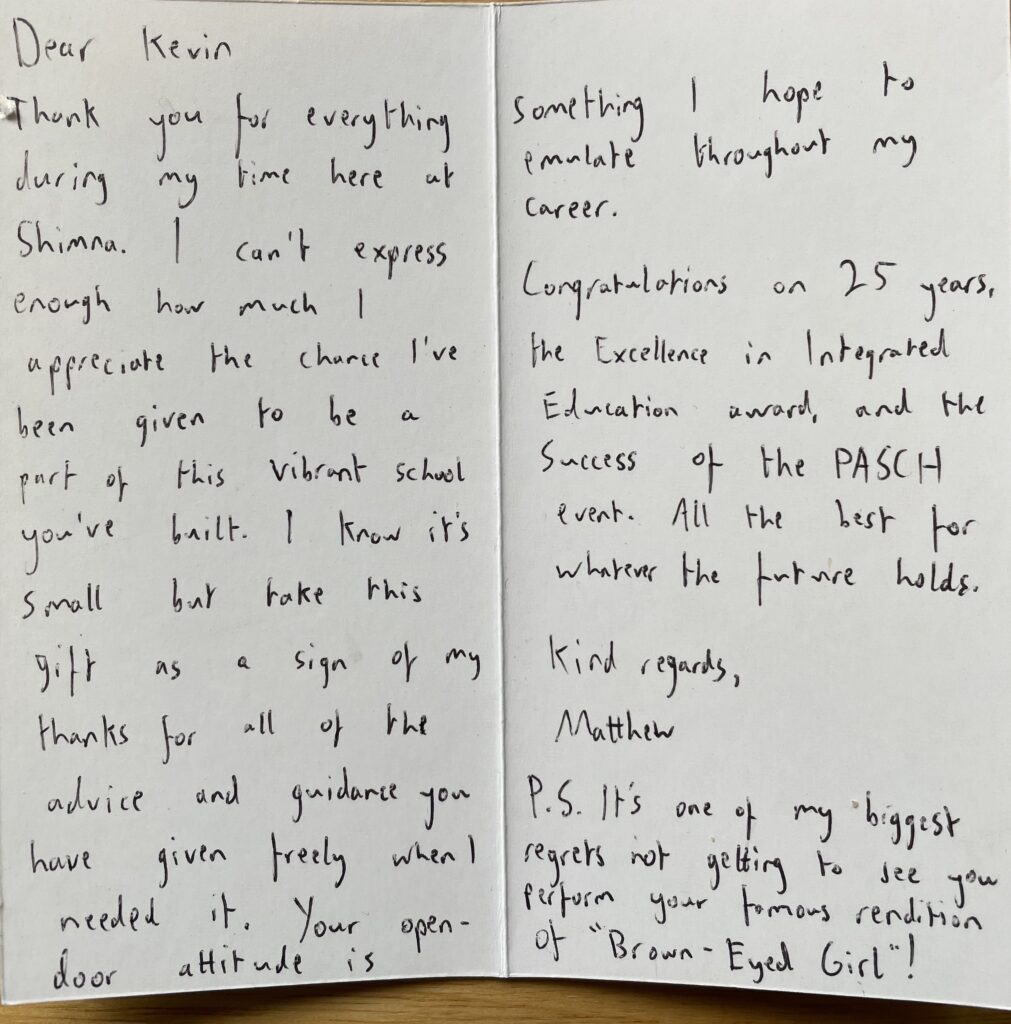 Dear Kevin
Thank you for everything
during my time here at
Shimna. I can't express
enough how much I
appreciate the chance I've
been given to be a
part of this vibrant school
you've built. I know it's
small but take this
gift as a sign of my
thanks for all of the
advice and guidance you
have given freely when I
needed it. Your open-
door attitude is
something I hope to
emulate throughout my
career.
Congratulations on 25 years,
the Excellence in Integrated
Education award, and the
Success of the PASCH
event. All the best for
whatever the future holds.
Kind regards,
Matthew
P.S. It's one of my biggest
regrets not getting to see you
perform your famous rendition
of "Brown-Eyed Girl"!